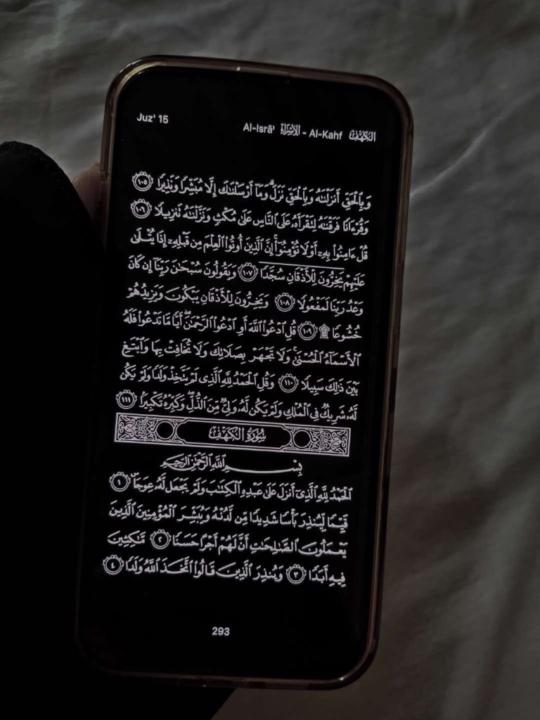 Juz' 15
Al-Isrā' الإسراء - Al-Kahf الكهف
وَبِٱلْحَقِّ أَنزَلْنَٰهُ وَبِٱلْحَقِّ نَزَلَ ۗ وَمَآ أَرْسَلْنَٰكَ إِلَّا مُبَشِّرًا وَنَذِيرًا ١٠٥
وَقُرْءَانًا فَرَقْنَٰهُ لِتَقْرَأَهُۥ عَلَى ٱلنَّاسِ عَلَىٰ مُكْثٍ وَنَزَّلْنَٰهُ تَنزِيلًا ١٠٦
قُلْ ءَامِنُوا۟ بِهِۦٓ أَوْ لَا تُؤْمِنُوٓا۟ ۚ إِنَّ ٱلَّذِينَ أُوتُوا۟ ٱلْعِلْمَ مِن قَبْلِهِۦٓ إِذَا يُتْلَىٰ
عَلَيْهِمْ يَخِرُّونَ لِلْأَذْقَانِ سُجَّدًا ١٠٧ وَيَقُولُونَ سُبْحَٰنَ رَبِّنَآ إِن كَانَ
وَعْدُ رَبِّنَا لَمَفْعُولًا ١٠٨ وَيَخِرُّونَ لِلْأَذْقَانِ يَبْكُونَ وَيَزِيدُهُمْ
خُشُوعًا ۩ ١٠٩ قُلِ ٱدْعُوا۟ ٱللَّهَ أَوِ ٱدْعُوا۟ ٱلرَّحْمَٰنَ ۖ أَيًّا مَّا تَدْعُوا۟ فَلَهُ
ٱلْأَسْمَآءُ ٱلْحُسْنَىٰ ۚ وَلَا تَجْهَرْ بِصَلَاتِكَ وَلَا تُخَافِتْ بِهَا وَٱبْتَغِ
بَيْنَ ذَٰلِكَ سَبِيلًا ١١٠ وَقُلِ ٱلْحَمْدُ لِلَّهِ ٱلَّذِى لَمْ يَتَّخِذْ وَلَدًا وَلَمْ يَكُن
لَّهُۥ شَرِيكٌ فِى ٱلْمُلْكِ وَلَمْ يَكُن لَّهُۥ وَلِىٌّ مِّنَ ٱلذُّلِّ ۖ وَكَبِّرْهُ تَكْبِيرًۢا ١١١
سُورَةُ الكَهْفِ
بِسْمِ ٱللَّهِ ٱلرَّحْمَٰنِ ٱلرَّحِيمِ
ٱلْحَمْدُ لِلَّهِ ٱلَّذِىٓ أَنزَلَ عَلَىٰ عَبْدِهِ ٱلْكِتَٰبَ وَلَمْ يَجْعَل لَّهُۥ عِوَجَا ۜ ١
قَيِّمًا لِّيُنذِرَ بَأْسًا شَدِيدًا مِّن لَّدُنْهُ وَيُبَشِّرَ ٱلْمُؤْمِنِينَ ٱلَّذِينَ
يَعْمَلُونَ ٱلصَّٰلِحَٰتِ أَنَّ لَهُمْ أَجْرًا حَسَنًا ٢ مَّٰكِثِينَ
فِيهِ أَبَدًا ٣ وَيُنذِرَ ٱلَّذِينَ قَالُوا۟ ٱتَّخَذَ ٱللَّهُ وَلَدًا ٤
293